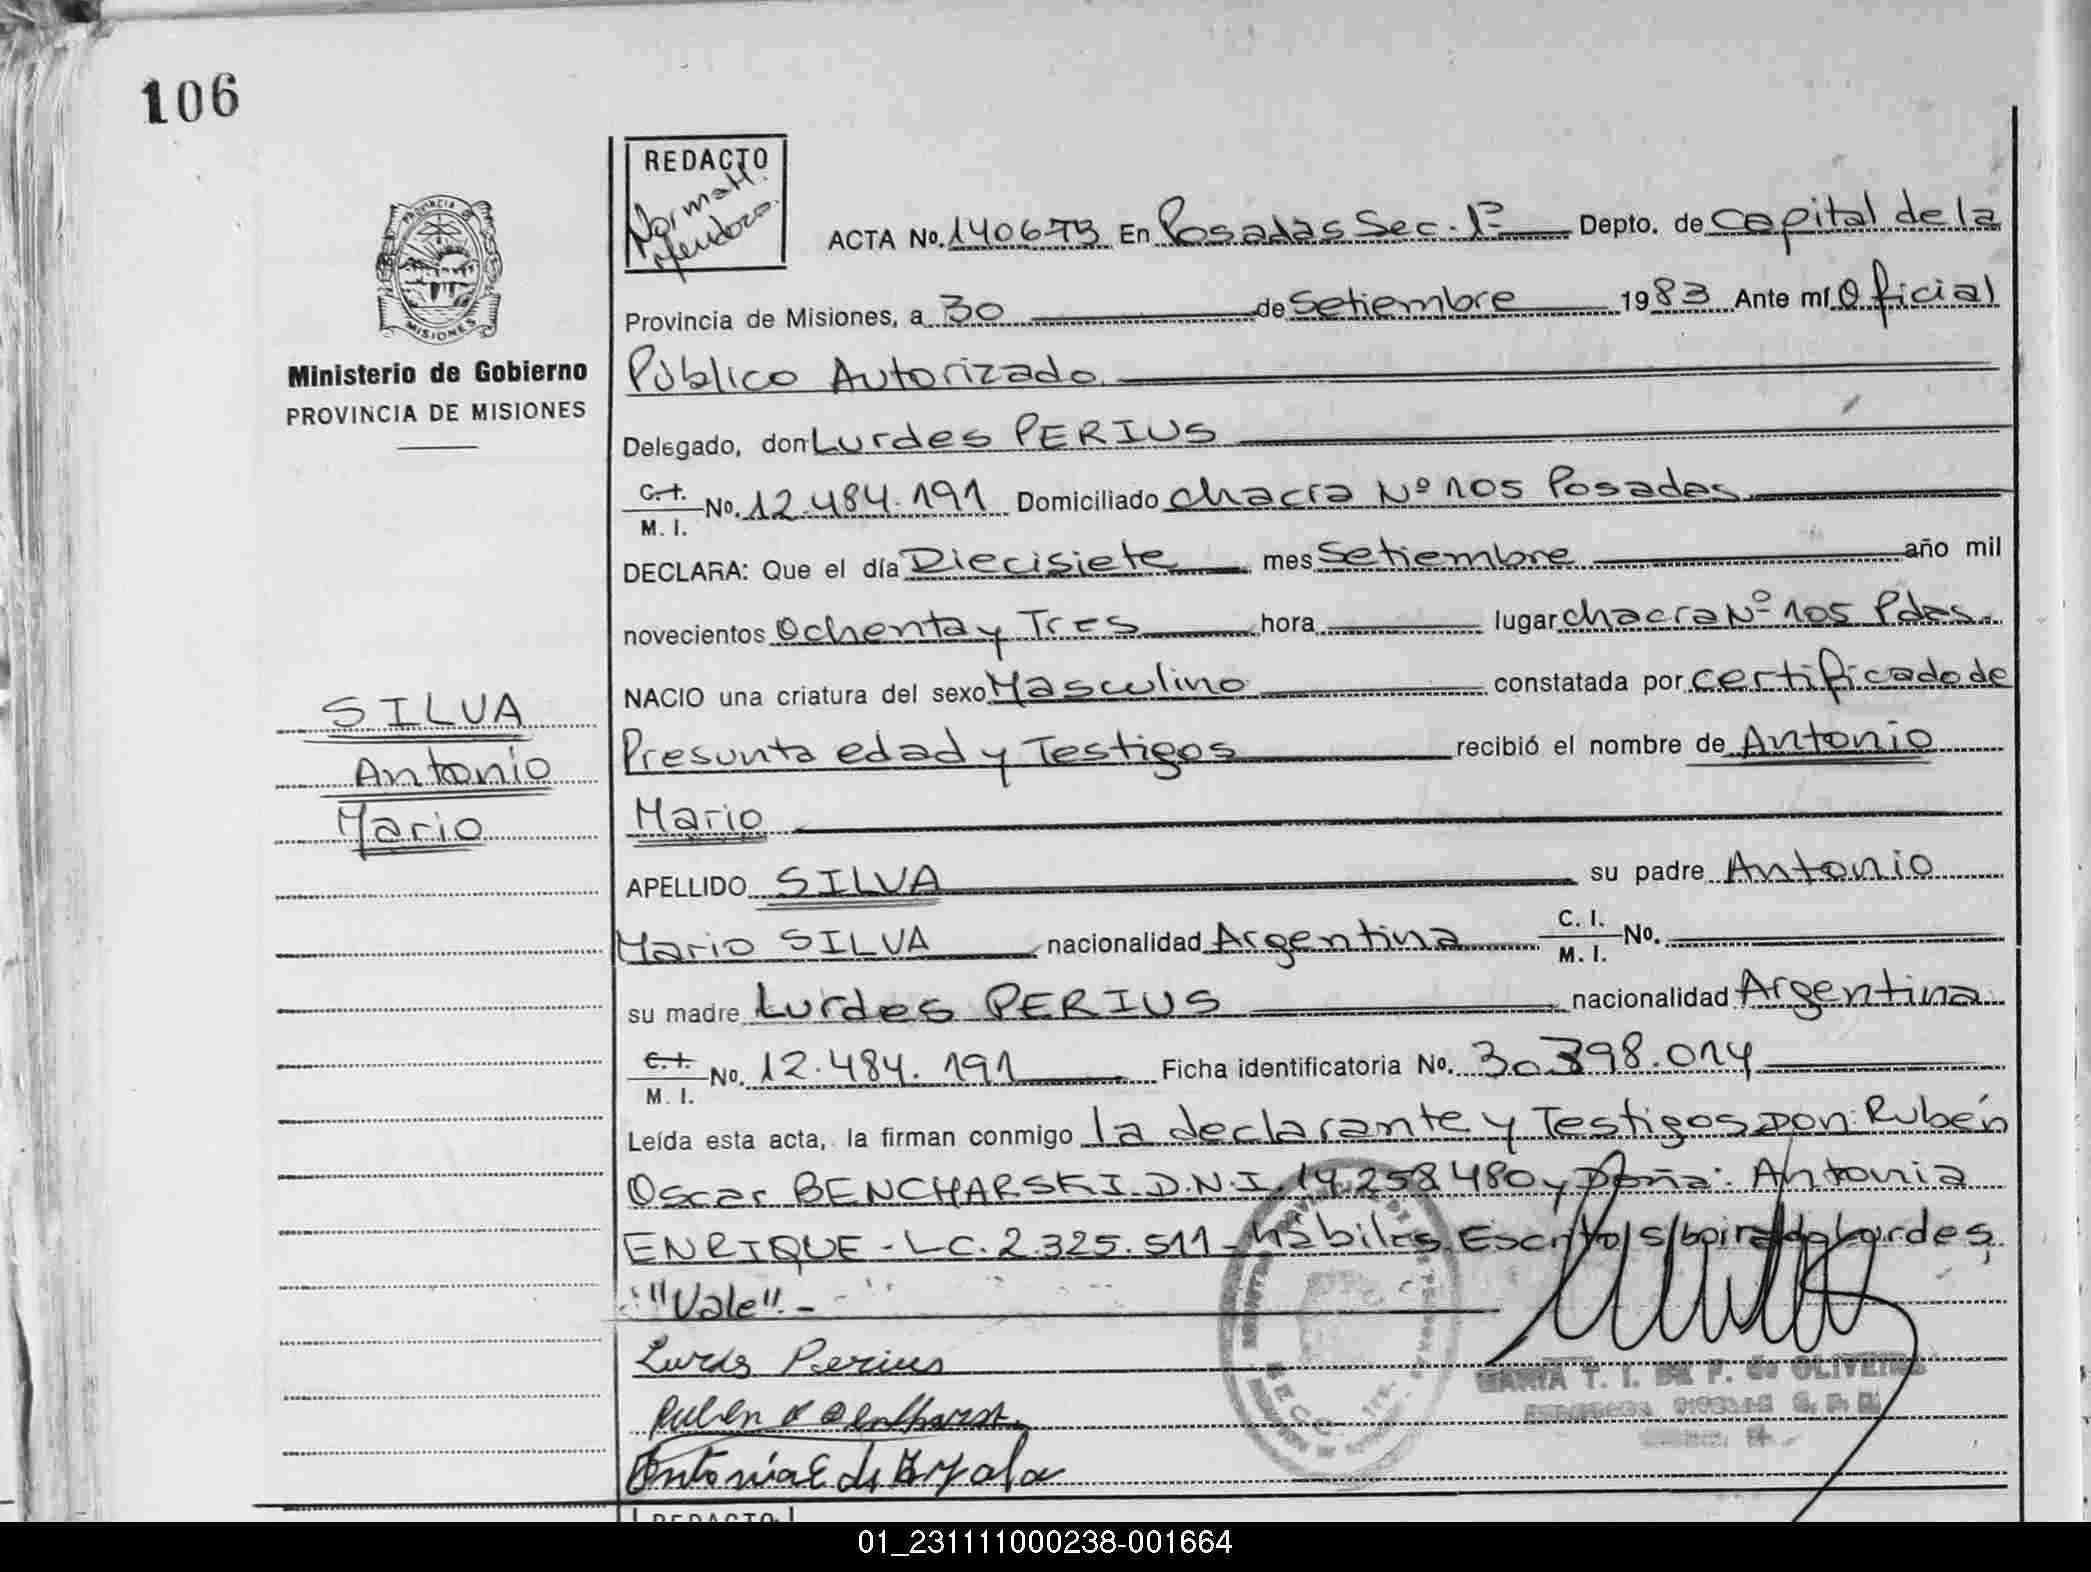 106
REDACTO
Norma H.
Mendoza.
ACTA No. 140673 En Posadas Sec. 1ª Depto. de Capital de la
PROVINCIA DE
MISIONES
Provincia de Misiones, a 30 de Setiembre 1983 Ante mí Oficial
Ministerio de Gobierno
PROVINCIA DE MISIONES
Público Autorizado
Delegado, don Lurdes PERIUS
C. I. M. I. No. 12.484.191 Domiciliado Chacra Nº 105 Posadas
DECLARA: Que el día Diecisiete mes Setiembre año mil
novecientos Ochenta y Tres hora lugar Chacra Nº 105 Pdas.
NACIO una criatura del sexo Masculino constatada por certificado de
SILVA
Antonio
Mario
Presunta edad y Testigos recibió el nombre de Antonio
Mario
APELLIDO SILVA su padre Antonio
Mario SILVA nacionalidad Argentina C. I. M. I. No.
su madre Lurdes PERIUS nacionalidad Argentina
C. I. M. I. No. 12.484.191 Ficha identificatoria No. 30.398.014
Leída esta acta, la firman conmigo la declarante y Testigos Don: Rubén
Oscar BENCHARSKI D.N.I. 14.258.480 y Doña: Antonia
ENRIQUE - LC. 2.325.511 - hábiles. Escrito s/ Lurdes,
"Vale". -
Lurdes Perius
Ruben O
MARIA T. I. DE F. de OLIVEIRA
Antonia E de Ayala
REDACTO
01_231111000238-001664